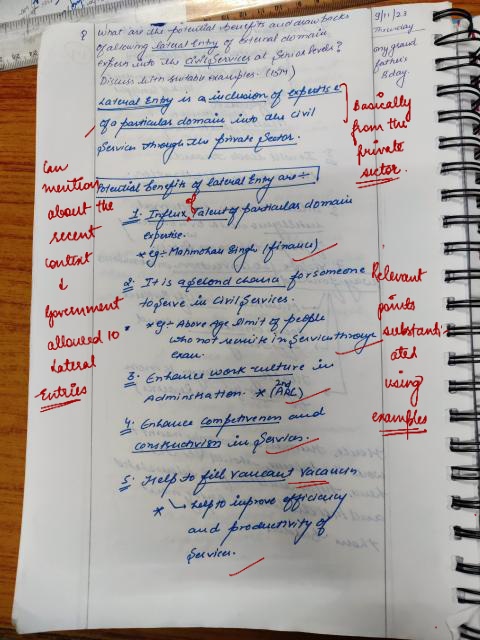 9/11/23
Thursday
my grand
father's
Bday.
Q What are the potential benefits and drawbacks
of allowing lateral Entry of external domain
expert into the civil services at Senior levels?
Discuss with suitable examples. (15M)
Lateral Entry is a inclusion of expertise
of a particular domain into the Civil
Service through the private Sector.
Basically
from the
private
sector.
Can
mention
about the
recent
context
&
Government
allowed 10
Lateral
Entries
Potential benefits of lateral Entry are :-
1. Influx of Talent of particular domain
expertise.
* eg:- Manmohan Singh (finance)
2. It is a second chance for someone
to serve in Civil Services.
* eg:- Above Age limit of people
who not in Service through
exam.
3. Enhance work culture in
Adminstration. * (2nd ARC)
4. Enhance competiveness and
constructivism in Services.
5. Help to fill vaucant vacancies
* help to improve efficiency
and productivity of
Services.
Relevant
points
substanti
ated
using
examples